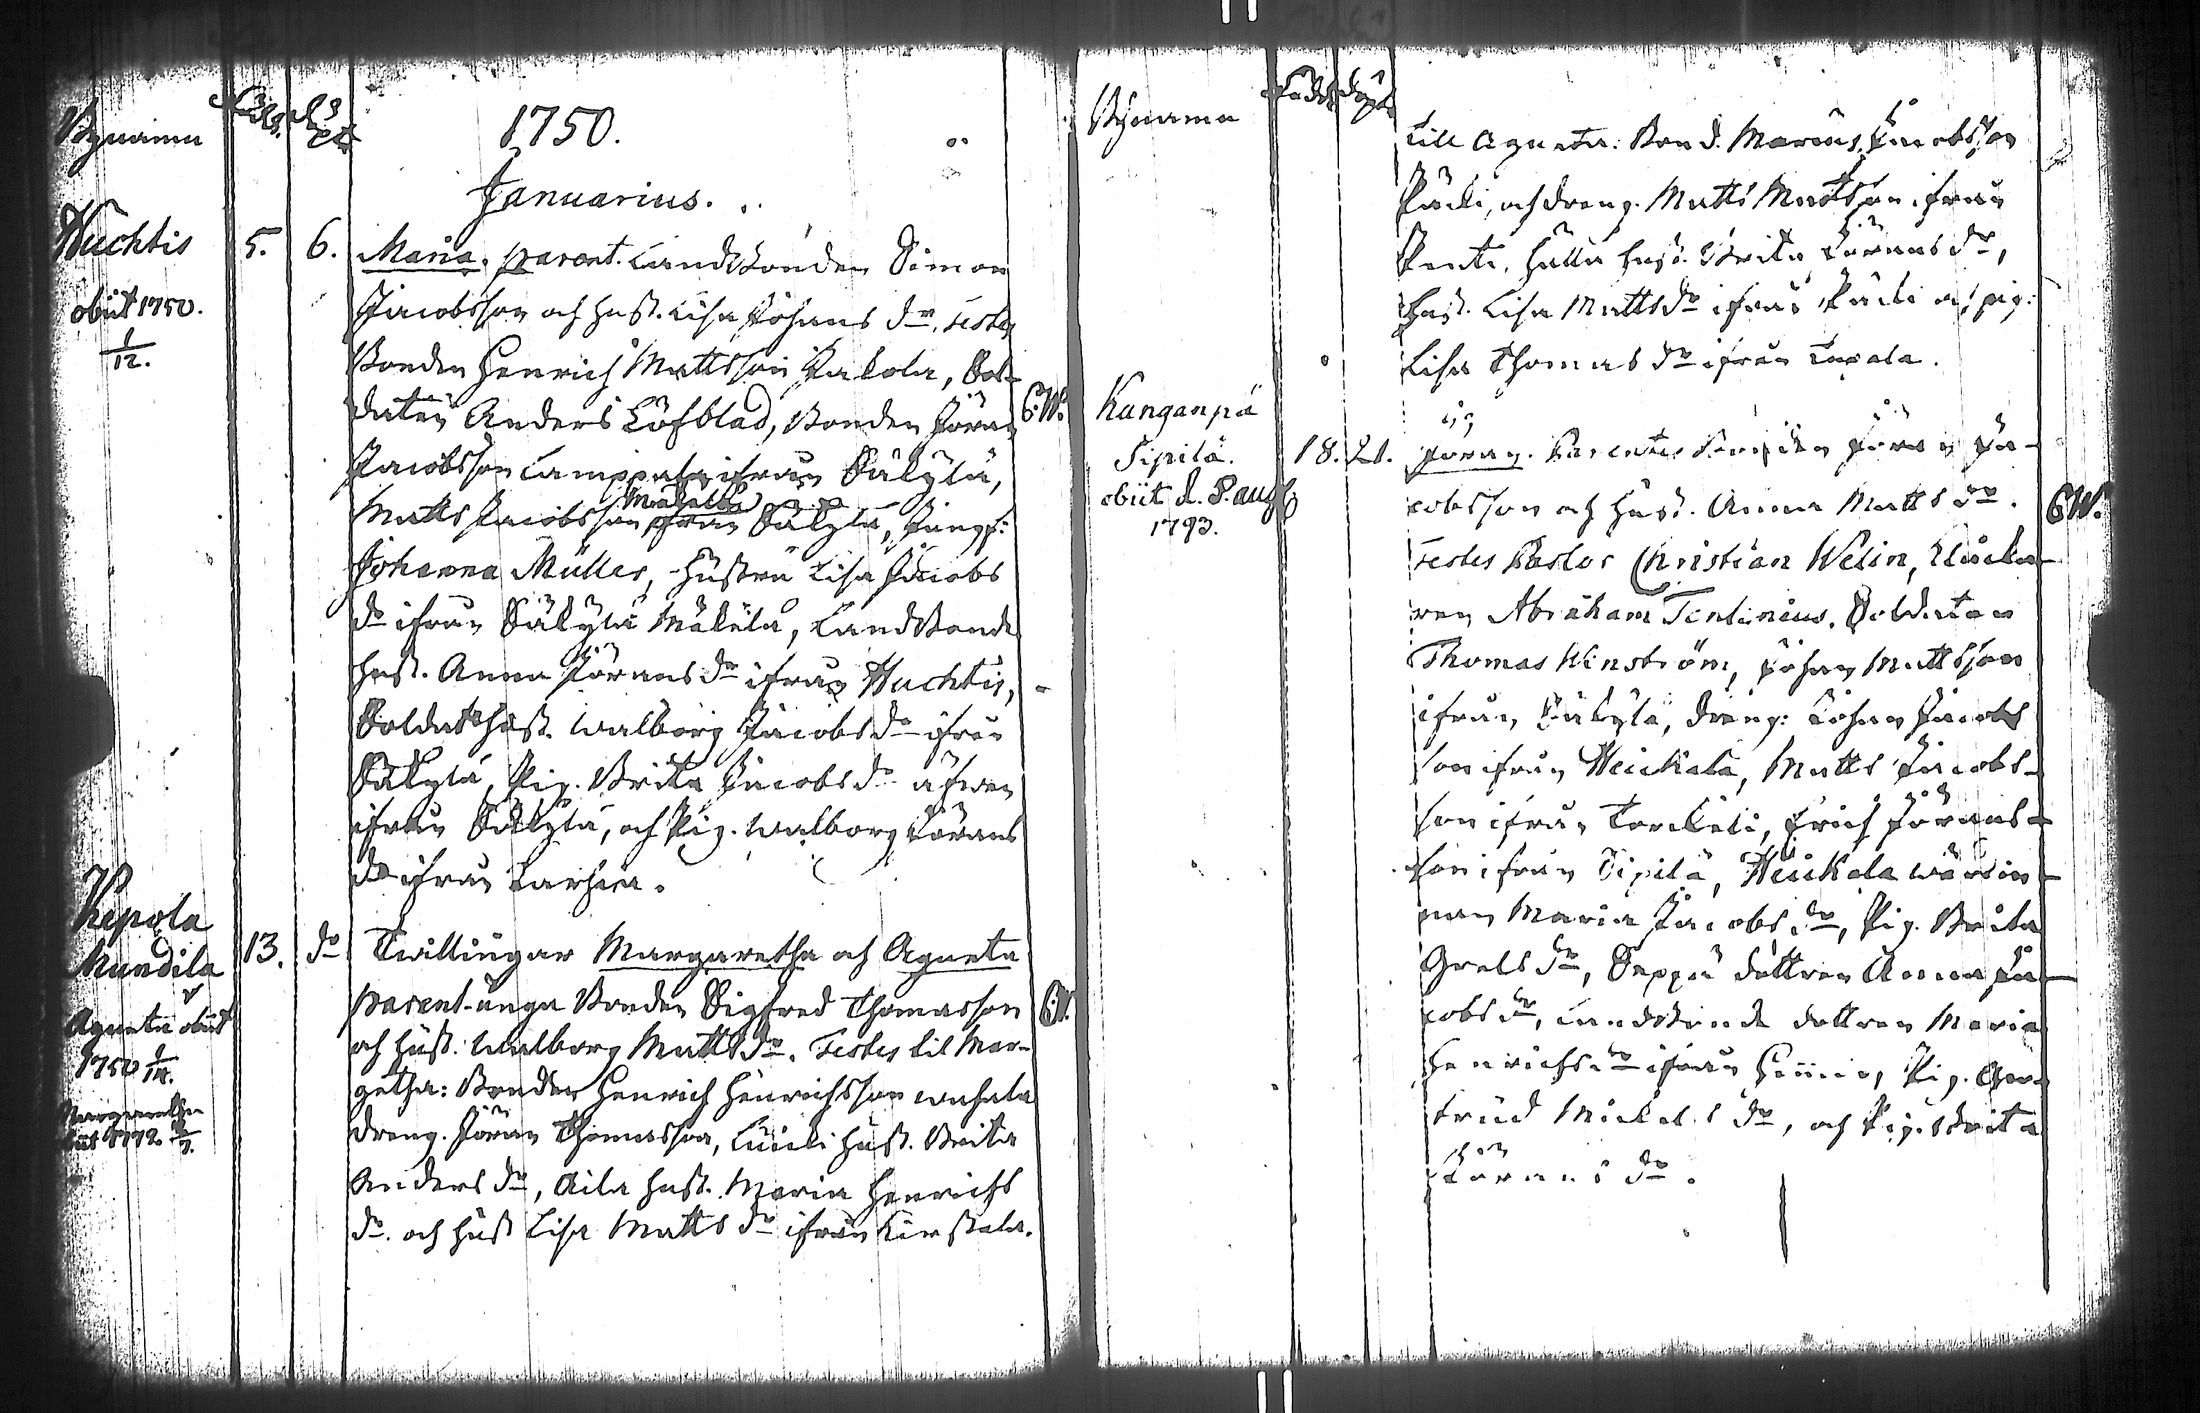 Bynamn
Födds. Döpt
1750.
Januarius.
Huchtis
5. 6. Maria. parent. Landbonden Simon
obiit 1750.
1/12.
Jacobsson och hust. Lisa Johans dr. Testes
Bonden Henrich Mattsson Kakola, Sol-
daten Anders Löfblad, Bonden Jöran
C.W.
Jacobsson Lamppala ifrån Säkylä,
Matts Jacobsson Mäkelä ifrån Säkylä, Jungf:
Johanna Müller, Hustru Lisa Jacobs
dr ifrån Säkylä Mäkelä, Landbonde
hust. Anna Jörans dr ifrån Huchtis,
Soldat hust. Walborg Jacobs dr ifrån
Säkylä, Pig. Brita Jacobs dr äfwen
ifrån Säkylä, och Pig. Walborg Jörans
dr ifrån
Kepola
Mundila
13. do Twillingar Margaretha och Agneta
Agneta obiit
1750
Margaretha
obiit 1772
parent. unga Bonden Sigfred Thomasson
C.W.
och hust. Walborg Matts dr. Testes til Mar-
getha: Bonden Henrich Henrichsson
dreng. Jöran Thomasson, hust. Brita
Anders dr, Aila hust. Maria Henrichs
dr. och hust Lisa Matts dr ifrån
Bynamn
Födds Döpt
till Agneta: Bond. Marcus Jacobsson
och dreng. Matts Mattsson ifrån
hust. Brita Jörans dr,
hust. Lisa Matts dr ifrån och pig:
Lisa Thomas dr ifrån
Kanganpä
Sipilä.
obiit d. 8. aug
1793.
18. 21. Jöran. Parentes Bonden Jöran Ja-
cobsson och hust. Anna Matts dr.
C.W.
Testes Pastor Christian Welin, Klocka-
ren Abraham Tentenius, Soldaten
Thomas Winström, Johan Mattsson
ifrån Säkylä, dreng: Johan Jacobs
son ifrån Heickala, Matts Jacobs-
son ifrån Torckeli, Erich Jörans-
son ifrån Sipilä, Heickala wärdin-
nan Maria Jacobs dr, Pig. Brita
Grels dr, Seppä dottren Anna Ja-
cobs dr, Landbonde dottren Maria
Henrichs dr ifrån Pig. Ger-
trud Mickels dr, och Pig. Brita
Jörans dr.